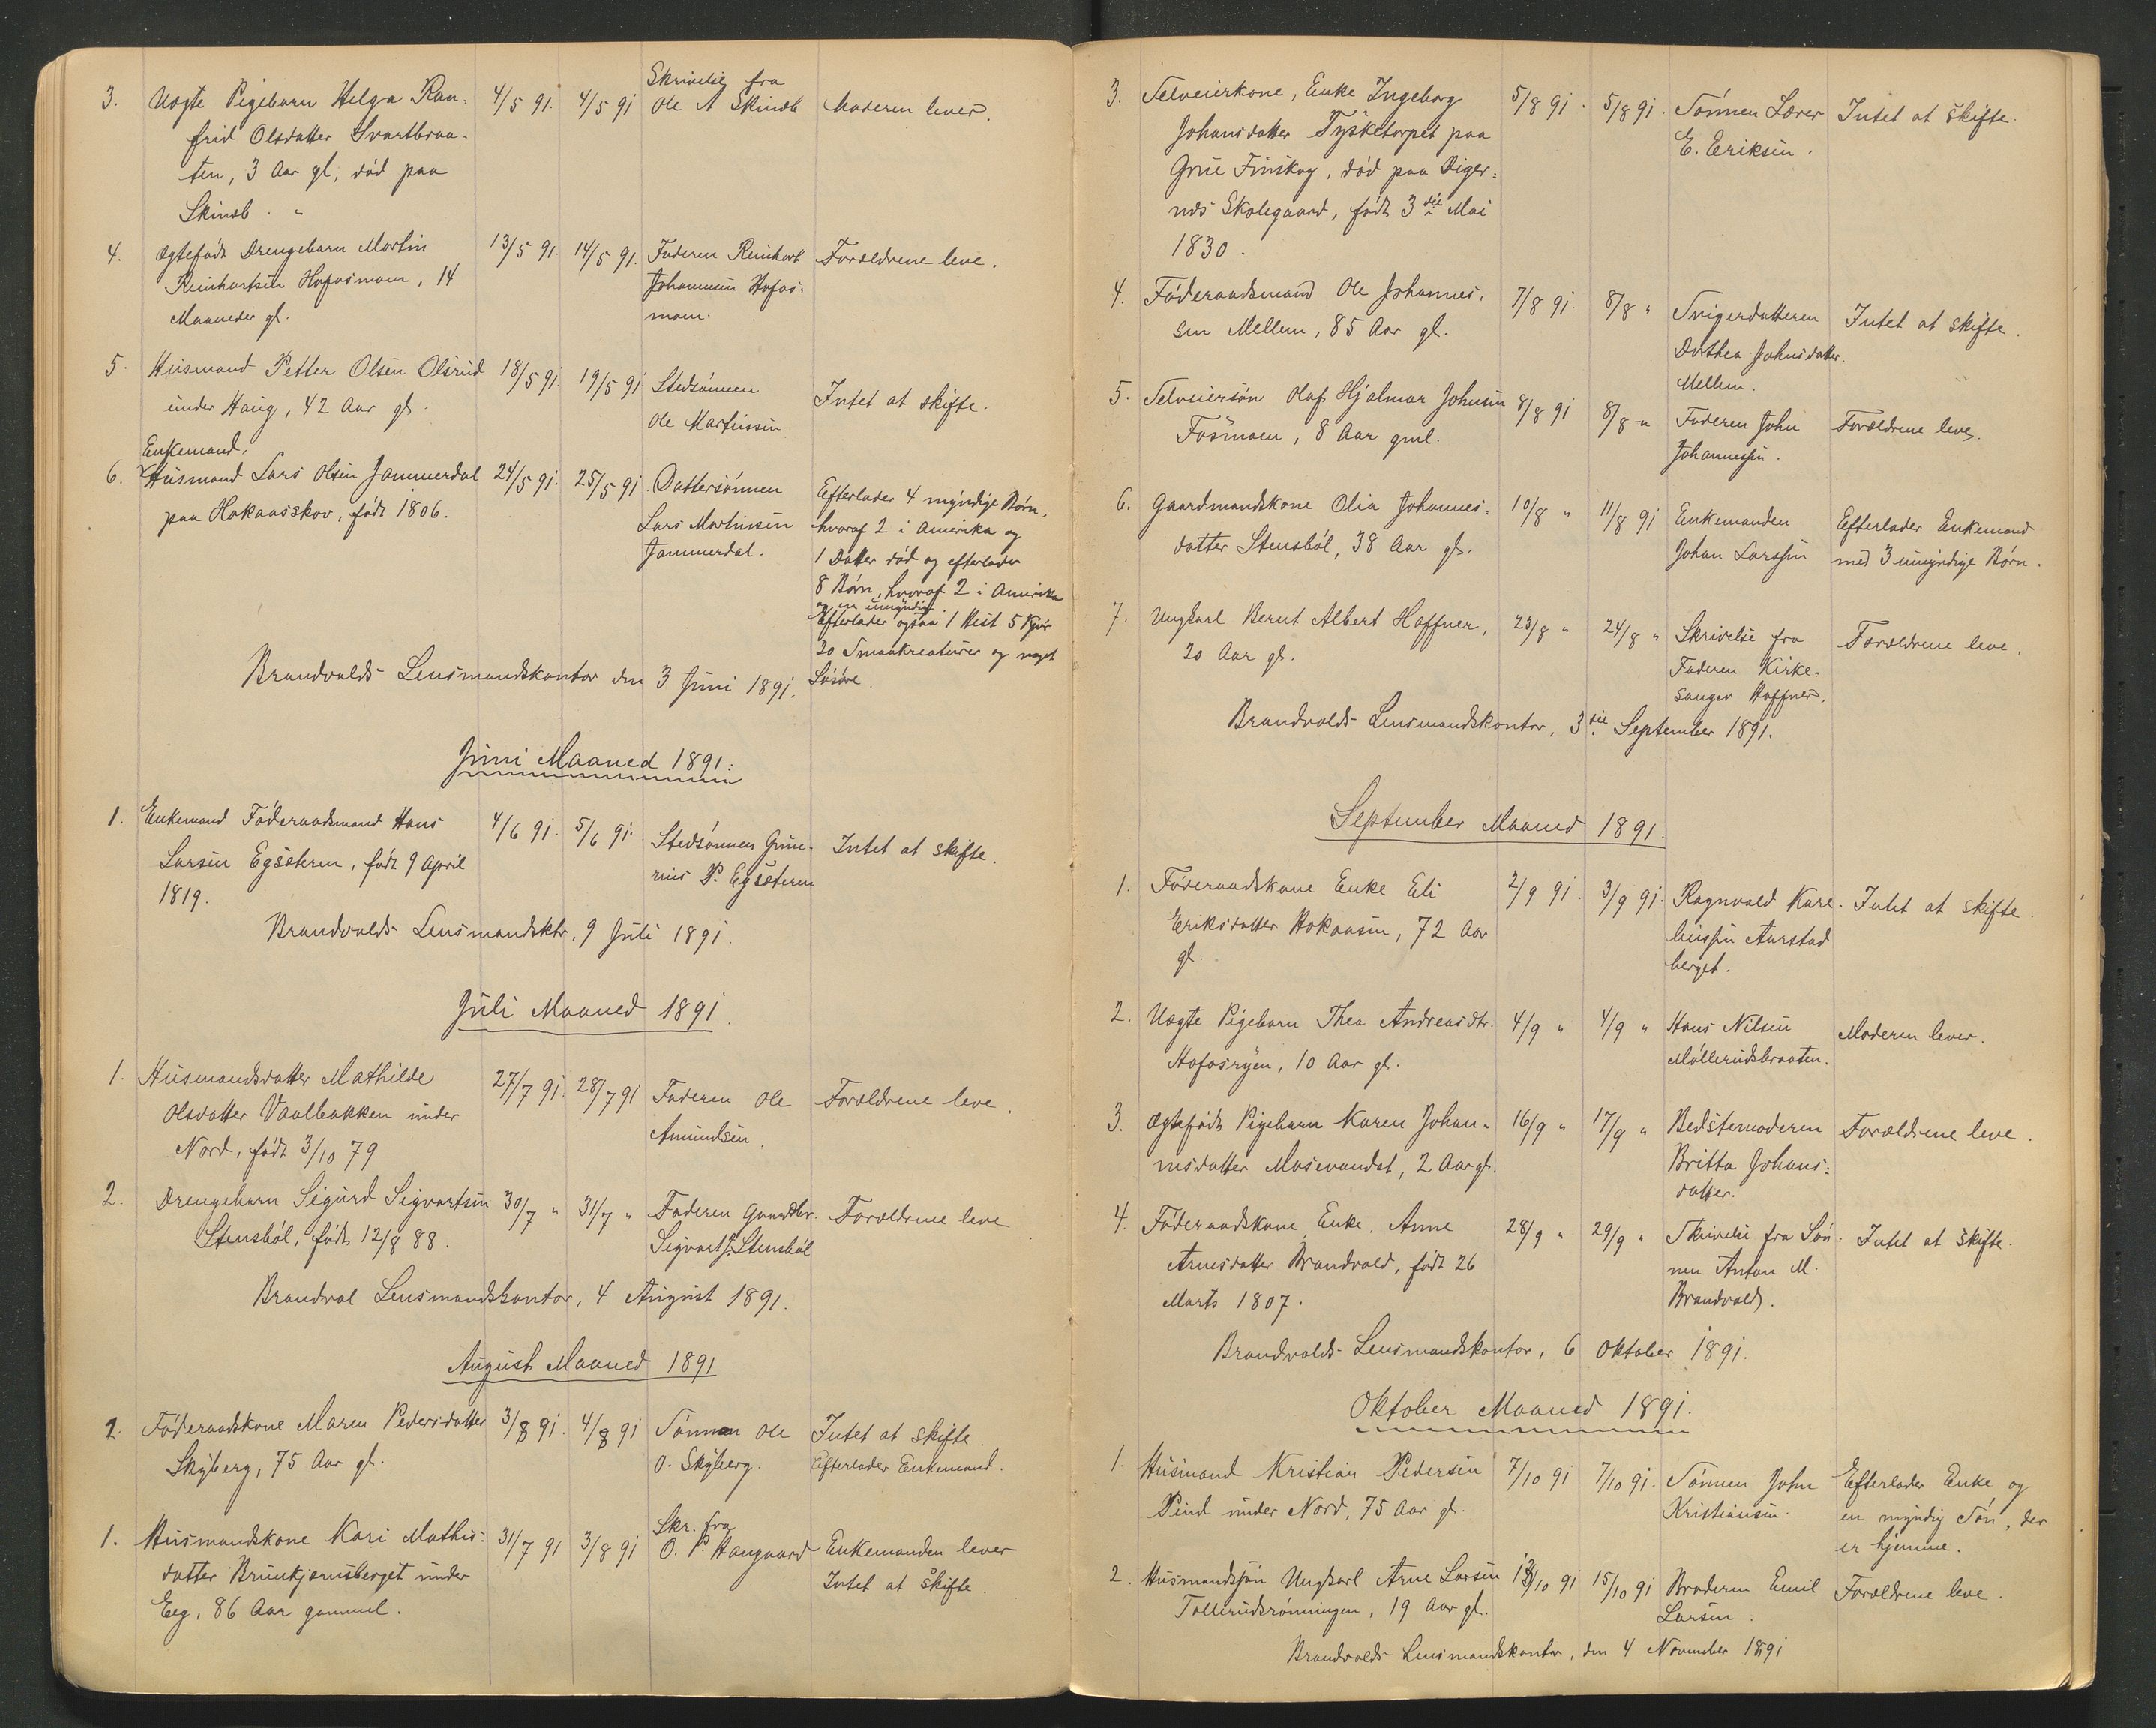 3. Uægte Pigebarn Helga Ran- 4/5 91. 4/5 91 Skrivelse fra Ole A Skinsb Moderen lever.
frid Olsdatter Svartbraa-
ten, 3 Aar gl, død paa
Skinsb. "
4. Ægtefødt Drengebarn Martin 13/5 91. 14/5 91. Faderen Reinhart Forældrene leve.
Reinhartsen Hofosmoen, 14 Johannesen Hofos-
Maaneder gl. moen.
5. Husmand Petter Olsen Olsrud 18/5 91. 19/5 91 Stedsønnen Intet at skifte.
under Haug, 42 Aar gl. Ole Martinssen
Enkemand.
6. Husmand Lars Olsen Jammerdal 24/5 91. 25/5 91. Dattersønnen Efterlader 4 myndige Børn,
paa Hokaasskov, født 1806. Lars Martinsen hvoraf 2 i Amerika og
Jammerdal. 1 Datter død og efterlader
8 Børn, hvoraf 2 i Amerika
og en umyndig.
Efterlader ogsaa 1 Hest 5 Kjør
20 Smaakreaturer og noget
Løsøre.
Brandvolds Lensmandskontor den 3 Juni 1891.
Juni Maaned 1891:
1. Enkemand Føderaadsmand Hans 4/6 91. 5/6 91. Stedsønnen Gune- Intet at skifte.
Larsen Egsæteren, født 9 April rius P. Egsæteren
1819.
Brandvolds Lensmandsktr, 9 Juli 1891.
Juli Maaned 1891.
1. Husmandsdatter Mathilde 27/7 91. 28/7 91 Faderen Ole Forældrene leve.
Olsdatter Vaalbakken under Amundsen.
Nord, født 3/10 79
2. Drengebarn Sigurd Sigvartsen 30/7 " 31/7 " Faderen Gaardbr. Forældrene leve
Stensbøl, født 12/8 88. Sigvart J. Stensbøl
Brandval Lensmandskontor, 4 August 1891.
August Maaned 1891
2. Føderaadskone Maren Pedersdatter 3/8 91. 4/8 91 Sønnen Ole Intet at skifte.
Skyberg, 75 Aar gl. O. Skyberg. Efterlader Enkemand.
1. Husmandskone Kari Mathis- 31/7 91 3/8 91 Skr. fra O. P. Haugaard Enkemanden lever
datter Brunkjernsberget under Intet at skifte.
Eeg, 86 Aar gammel.
3. Selveierkone, Enke Ingeborg 5/8 91. 5/8 91. Sønnen Lærer Intet at skifte.
Johansdatter Tysketorpet paa E. Eriksen.
Grue Finskog, død paa Diger-
næs Skolegaard, født 3die Mai
1830.
4. Føderaadsmand Ole Johannes- 7/8 91. 8/8 " Svigerdatteren Intet at skifte.
sen Mellem, 85 Aar gl. Dorthea Johnsdatter.
Mellem.
5. Selveiersøn Olaf Hjalmar Johnsen 8/8 91 8/8 " Faderen John Forældrene leve.
Fosmoen, 8 Aar gml. Johannessen.
6. Gaardmandskone Olia Johannes- 10/8 " 11/8 91 Enkemanden Efterlader Enkemand
datter Stensbøl, 38 Aar gl. Johan Larssen med 3 umyndige Børn.
7. Ungkarl Bernt Albert Haffner, 23/8 " 24/8 " Skrivelse fra Forældrene leve.
20 Aar gl. Faderen Kirke-
sanger Haffner.
Brandvolds Lensmandskontor, 3die September 1891.
September Maaned 1891.
1. Føderaadskone Enke Eli 2/9 91. 3/9 91. Ragnvald Kare- Intet at skifte.
Eriksdatter Hokaasen, 72 Aar liussen Aurstad
gl. berget.
2. Uægte Pigebarn Thea Andreasdtr. 4/9 " 4/9 " Hans Nilsen Moderen lever.
Hofosryen, 10 Aar gl. Møllerudsbraaten.
3. Ægtefødt Pigebarn Karen Johan- 16/9 " 17/9 " Bedstemoderen Forældrene leve.
nesdatter Mosevandet, 2 Aar gl. Britta Johans-
datter.
4. Føderaadskone, Enke, Anne 28/9 " 29/9 " Skrivelse fra Søn- Intet at skifte.
Arnesdatter Brandvold, født 26 nen Anton M.
Marts 1807. Brandvold.
Brandvolds Lensmandskontor, 6 Oktober 1891.
Oktober Maaned 1891.
1. Husmand Kristian Pedersen 7/10 91 7/10 91. Sønnen John Efterlader Enke og
Pind under Nord, 75 Aar gl. Kristiansen. en myndig Søn, der
er hjemme.
2. Husmandssøn Ungkarl Arne Larsen 13/10 91 15/10 91 Broderen Emil Forældrene leve.
Tollerudsrønningen, 19 Aar gl. Larsen.
Brandvolds Lensmandskontor, den 4 November 1891